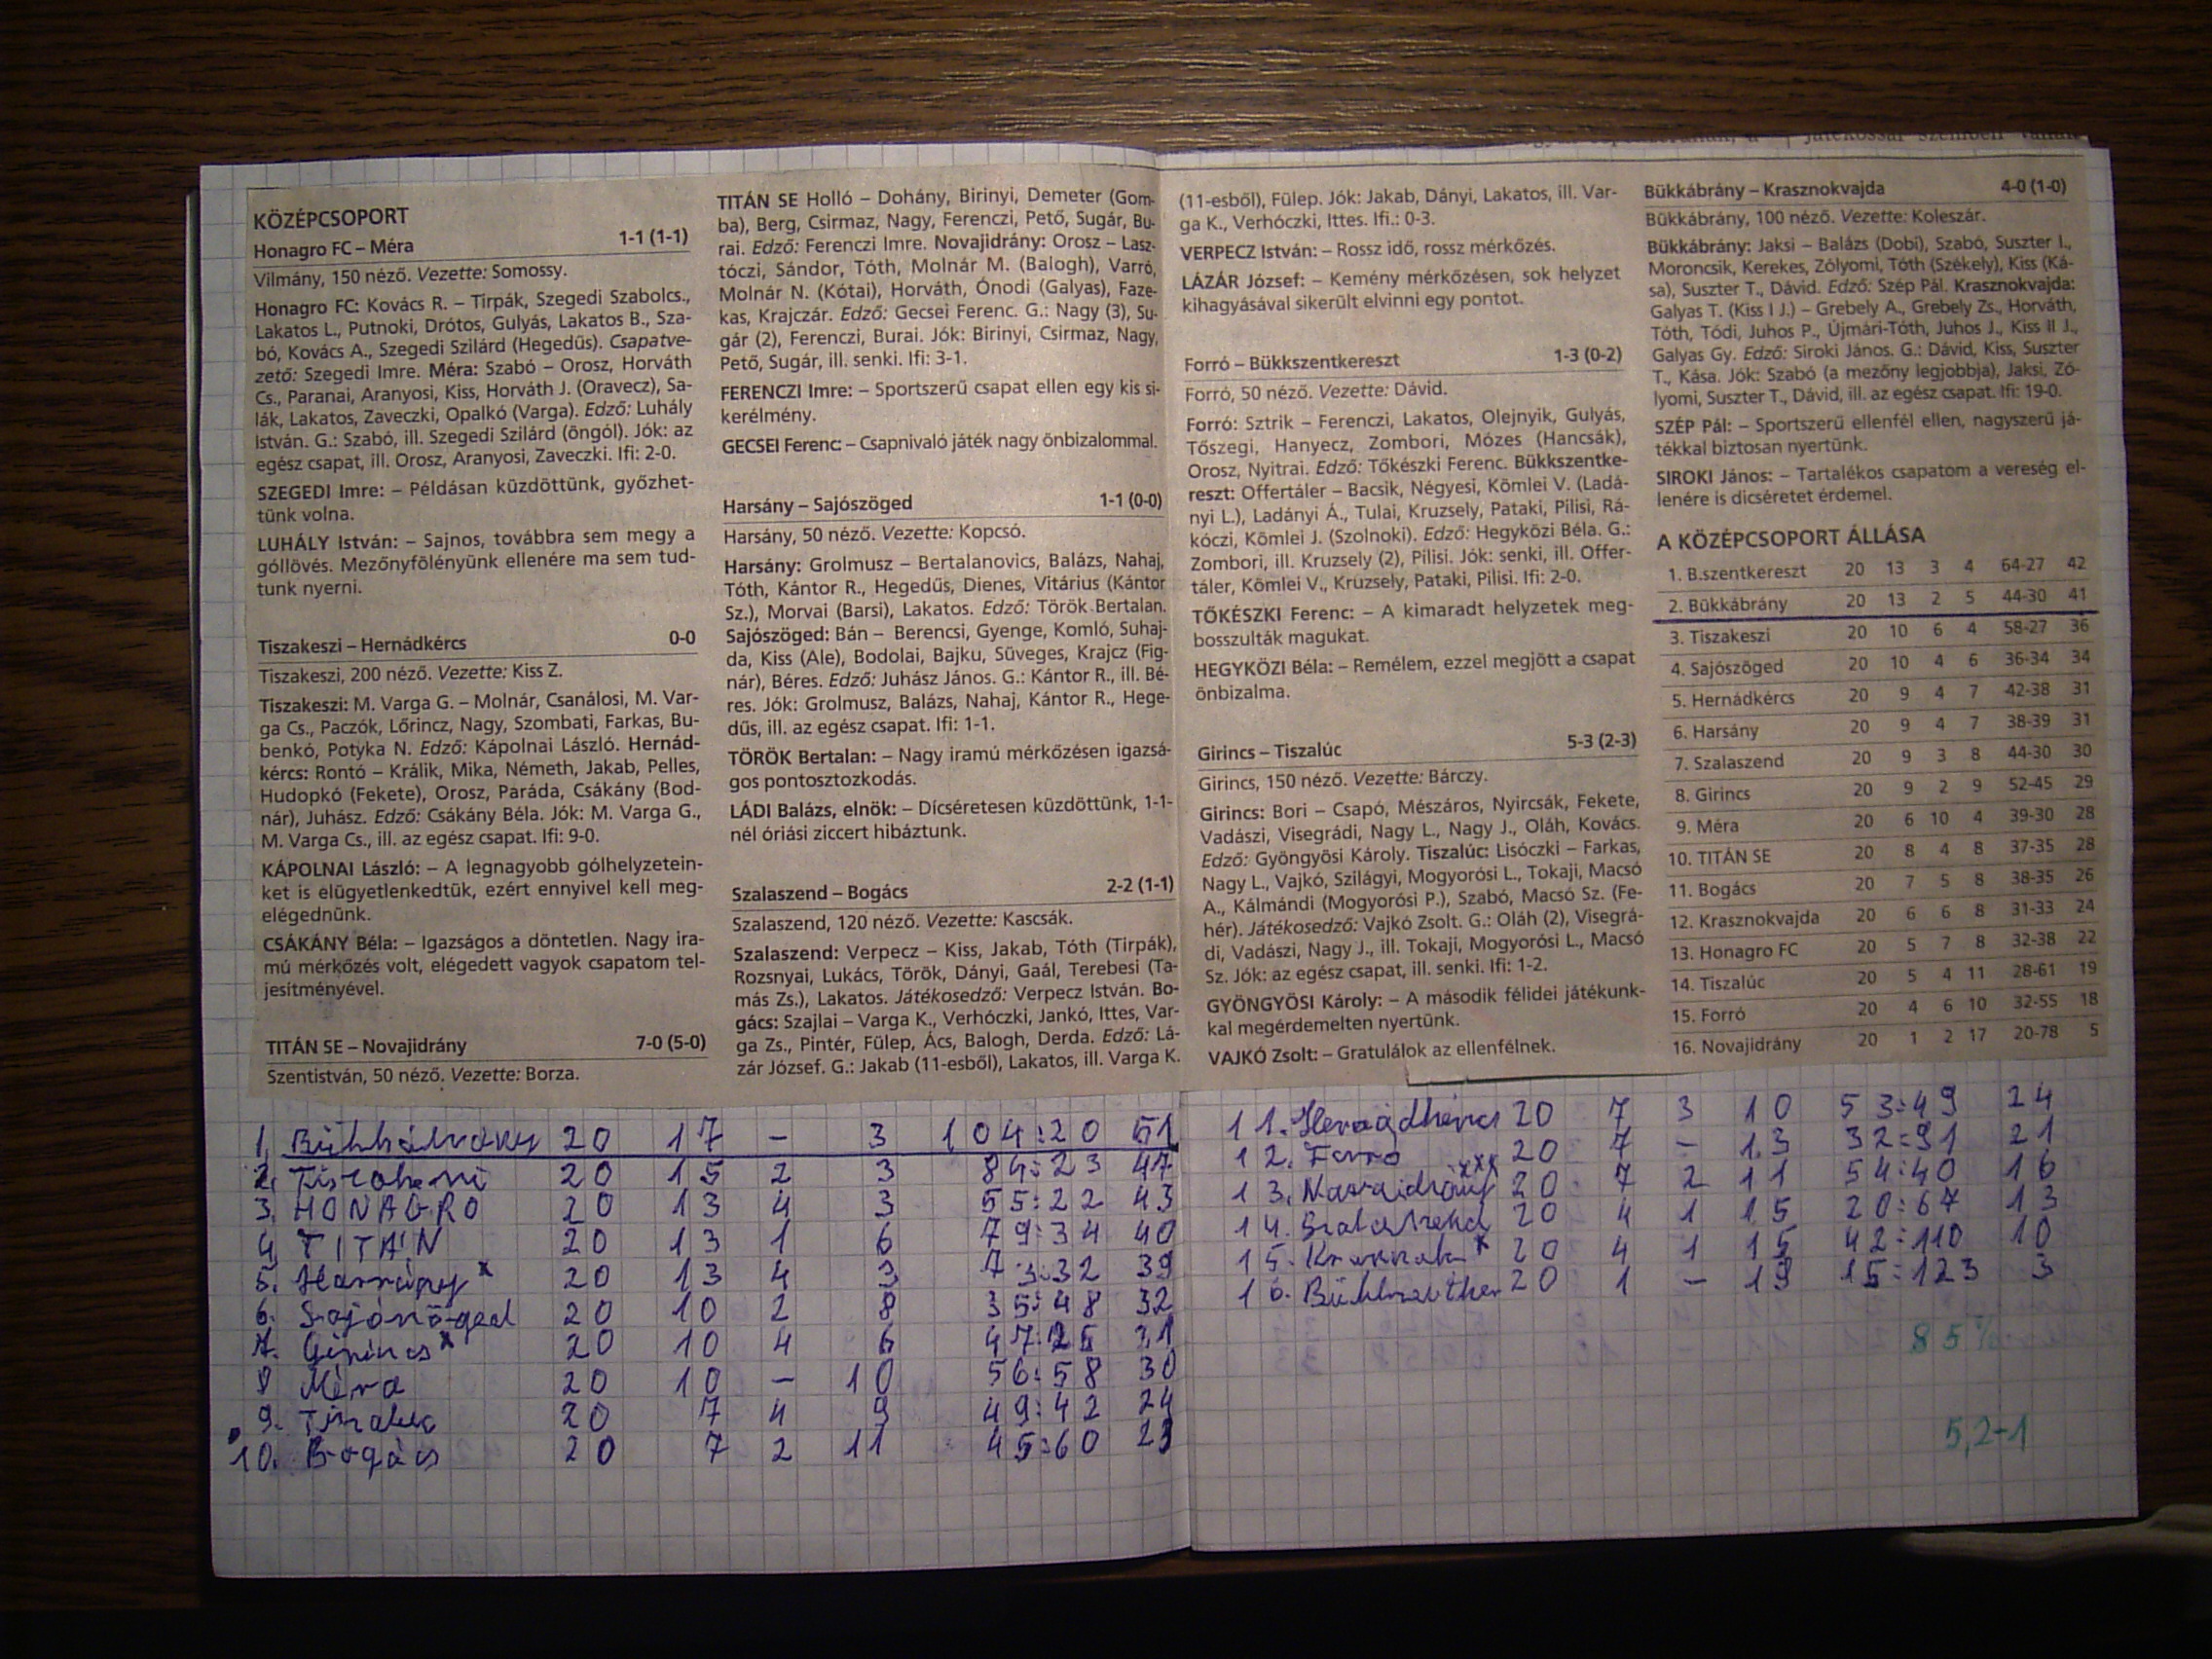 KÖZÉPCSOPORT
Honagro FC – Méra 1-1 (1-1)
Vilmány, 150 néző. Vezette: Somossy.
Honagro FC: Kovács R. – Tirpák, Szegedi Szabolcs.,
Lakatos L., Putnoki, Drótos, Gulyás, Lakatos B., Sza-
bó, Kovács A., Szegedi Szilárd (Hegedűs). Csapatve-
zető: Szegedi Imre. Méra: Szabó – Orosz, Horváth
Cs., Paranai, Aranyosi, Kiss, Horváth J. (Oravecz), Sa-
lák, Lakatos, Zaveczki, Opalkó (Varga). Edző: Luhály
István. G.: Szabó, ill. Szegedi Szilárd (öngól). Jók: az
egész csapat, ill. Orosz, Aranyosi, Zaveczki. Ifi: 2-0.
SZEGEDI Imre: – Példásan küzdöttünk, győzhet-
tünk volna.
LUHÁLY István: – Sajnos, továbbra sem megy a
góllövés. Mezőnyfölényünk ellenére ma sem tud-
tunk nyerni.
Tiszakeszi – Hernádkércs 0-0
Tiszakeszi, 200 néző. Vezette: Kiss Z.
Tiszakeszi: M. Varga G. – Molnár, Csanálosi, M. Var-
ga Cs., Paczók, Lőrincz, Nagy, Szombati, Farkas, Bu-
benkó, Potyka N. Edző: Kápolnai László. Hernád-
kércs: Rontó – Králik, Mika, Németh, Jakab, Pelles,
Hudopkó (Fekete), Orosz, Paráda, Csákány (Bod-
nár), Juhász. Edző: Csákány Béla. Jók: M. Varga G.,
M. Varga Cs., ill. az egész csapat. Ifi: 9-0.
KÁPOLNAI László: – A legnagyobb gólhelyzetein-
ket is elügyetlenkedtük, ezért ennyivel kell meg-
elégednünk.
CSÁKÁNY Béla: – Igazságos a döntetlen. Nagy ira-
mú mérkőzés volt, elégedett vagyok csapatom tel-
jesítményével.
TITÁN SE – Novajidrány 7-0 (5-0)
Szentistván, 50 néző. Vezette: Borza.
TITÁN SE Holló – Dohány, Birinyi, Demeter (Gom-
ba), Berg, Csirmaz, Nagy, Ferenczi, Pető, Sugár, Bu-
rai. Edző: Ferenczi Imre. Novajidrány: Orosz – Lasz-
tóczi, Sándor, Tóth, Molnár M. (Balogh), Varró,
Molnár N. (Kótai), Horváth, Ónodi (Galyas), Faze-
kas, Krajczár. Edző: Gecsei Ferenc. G.: Nagy (3), Su-
gár (2), Ferenczi, Burai. Jók: Birinyi, Csirmaz, Nagy,
Pető, Sugár, ill. senki. Ifi: 3-1.
FERENCZI Imre: – Sportszerű csapat ellen egy kis si-
kerélmény.
GECSEI Ferenc: – Csapnivaló játék nagy önbizalommal.
Harsány – Sajószöged 1-1 (0-0)
Harsány, 50 néző. Vezette: Kopcsó.
Harsány: Grolmusz – Bertalanovics, Balázs, Nahaj,
Tóth, Kántor R., Hegedűs, Dienes, Vitárius (Kántor
Sz.), Morvai (Barsi), Lakatos. Edző: Török Bertalan.
Sajószöged: Bán – Berencsi, Gyenge, Komló, Suhaj-
da, Kiss (Ale), Bodolai, Bajku, Süveges, Krajcz (Fig-
nár), Béres. Edző: Juhász János. G.: Kántor R., ill. Bé-
res. Jók: Grolmusz, Balázs, Nahaj, Kántor R., Hege-
dűs, ill. az egész csapat. Ifi: 1-1.
TÖRÖK Bertalan: – Nagy iramú mérkőzésen igazsá-
gos pontosztozkodás.
LÁDI Balázs, elnök: – Dícséretesen küzdöttünk, 1-1-
nél óriási ziccert hibáztunk.
Szalaszend – Bogács 2-2 (1-1)
Szalaszend, 120 néző. Vezette: Kascsák.
Szalaszend: Verpecz – Kiss, Jakab, Tóth (Tirpák),
Rozsnyai, Lukács, Török, Dányi, Gaál, Terebesi (Ta-
más Zs.), Lakatos. Játékosedző: Verpecz István. Bo-
gács: Szajlai – Varga K., Verhóczki, Jankó, Ittes, Var-
ga Zs., Pintér, Fülep, Ács, Balogh, Derda. Edző: Lá-
zár József. G.: Jakab (11-esből), Lakatos, ill. Varga K.
(11-esből), Fülep. Jók: Jakab, Dányi, Lakatos, ill. Var-
ga K., Verhóczki, Ittes. Ifi.: 0-3.
VERPECZ István: – Rossz idő, rossz mérkőzés.
LÁZÁR József: – Kemény mérkőzésen, sok helyzet
kihagyásával sikerült elvinni egy pontot.
Forró – Bükkszentkereszt 1-3 (0-2)
Forró, 50 néző. Vezette: Dávid.
Forró: Sztrik – Ferenczi, Lakatos, Olejnyik, Gulyás,
Tőszegi, Hanyecz, Zombori, Mózes (Hancsák),
Orosz, Nyitrai. Edző: Tőkészki Ferenc. Bükkszentke-
reszt: Offertáler – Bacsik, Négyesi, Kömlei V. (Ladá-
nyi L.), Ladányi Á., Tulai, Kruzsely, Pataki, Pilisi, Rá-
kóczi, Kömlei J. (Szolnoki). Edző: Hegyközi Béla. G.:
Zombori, ill. Kruzsely (2), Pilisi. Jók: senki, ill. Offer-
táler, Kömlei V., Kruzsely, Pataki, Pilisi. Ifi: 2-0.
TŐKÉSZKI Ferenc: – A kimaradt helyzetek meg-
bosszulták magukat.
HEGYKÖZI Béla: – Remélem, ezzel megjött a csapat
önbizalma.
Girincs – Tiszalúc 5-3 (2-3)
Girincs, 150 néző. Vezette: Bárczy.
Girincs: Bori – Csapó, Mészáros, Nyircsák, Fekete,
Vadászi, Visegrádi, Nagy L., Nagy J., Oláh, Kovács.
Edző: Gyöngyösi Károly. Tiszalúc: Lisóczki – Farkas,
Nagy L., Vajkó, Szilágyi, Mogyorósi L., Tokaji, Macsó
A., Kálmándi (Mogyorósi P.), Szabó, Macsó Sz. (Fe-
hér). Játékosedző: Vajkó Zsolt. G.: Oláh (2), Visegrá-
di, Vadászi, Nagy J., ill. Tokaji, Mogyorósi L., Macsó
Sz. Jók: az egész csapat, ill. senki. Ifi: 1-2.
GYÖNGYÖSI Károly: – A második félidei játékunk-
kal megérdemelten nyertünk.
VAJKÓ Zsolt: – Gratulálok az ellenfélnek.
Bükkábrány – Krasznokvajda 4-0 (1-0)
Bükkábrány, 100 néző. Vezette: Koleszár.
Bükkábrány: Jaksi – Balázs (Dobi), Szabó, Suszter I.,
Moroncsik, Kerekes, Zólyomi, Tóth (Székely), Kiss (Ká-
sa), Suszter T., Dávid. Edző: Szép Pál. Krasznokvajda:
Galyas T. (Kiss I J.) – Grebely A., Grebely Zs., Horváth,
Tóth, Tódi, Juhos P., Újmári-Tóth, Juhos J., Kiss II J.,
Galyas Gy. Edző: Siroki János. G.: Dávid, Kiss, Suszter
T., Kása. Jók: Szabó (a mezőny legjobbja), Jaksi, Zó-
lyomi, Suszter T., Dávid, ill. az egész csapat. Ifi: 19-0.
SZÉP Pál: – Sportszerű ellenfél ellen, nagyszerű já-
tékkal biztosan nyertünk.
SIROKI János: – Tartalékos csapatom a vereség el-
lenére is dicséretet érdemel.
A KÖZÉPCSOPORT ÁLLÁSA
1. B.szentkereszt 20 13 3 4 64-27 42
2. Bükkábrány 20 13 2 5 44-30 41
3. Tiszakeszi 20 10 6 4 58-27 36
4. Sajószöged 20 10 4 6 36-34 34
5. Hernádkércs 20 9 4 7 42-38 31
6. Harsány 20 9 4 7 38-39 31
7. Szalaszend 20 9 3 8 44-30 30
8. Girincs 20 9 2 9 52-45 29
9. Méra 20 6 10 4 39-30 28
10. TITÁN SE 20 8 4 8 37-35 28
11. Bogács 20 7 5 8 38-35 26
12. Krasznokvajda 20 6 6 8 31-33 24
13. Honagro FC 20 5 7 8 32-38 22
14. Tiszalúc 20 5 4 11 28-61 19
15. Forró 20 4 6 10 32-55 18
16. Novajidrány 20 1 2 17 20-78 5
1. Bükkábrány 20 17 – 3 104:20 51
2. Tiszakeszi 20 15 2 3 84:23 47
3. HONAGRO 20 13 4 3 55:22 43
4. TITÁN 20 13 1 6 79:34 40
5. Harsány x 20 13 4 3 73:32 39
6. Sajószöged 20 10 2 8 35:48 32
7. Girincs x 20 10 4 6 47:25 31
8 Méra 20 10 – 10 56:58 30
9. Tiszaluc 20 7 4 9 49:42 24
10. Bogács 20 7 2 11 45:60 23
11. Hernádkércs 20 7 3 10 53:49 24
12. Forró 20 7 – 13 32:91 21
13. Novajidrány xxx 20 7 2 11 54:40 16
14. Szalaszend 20 4 1 15 20:67 13
15. x 20 4 1 15 42:110 10
16. 20 1 – 19 15:123 3
85%
5,2-1